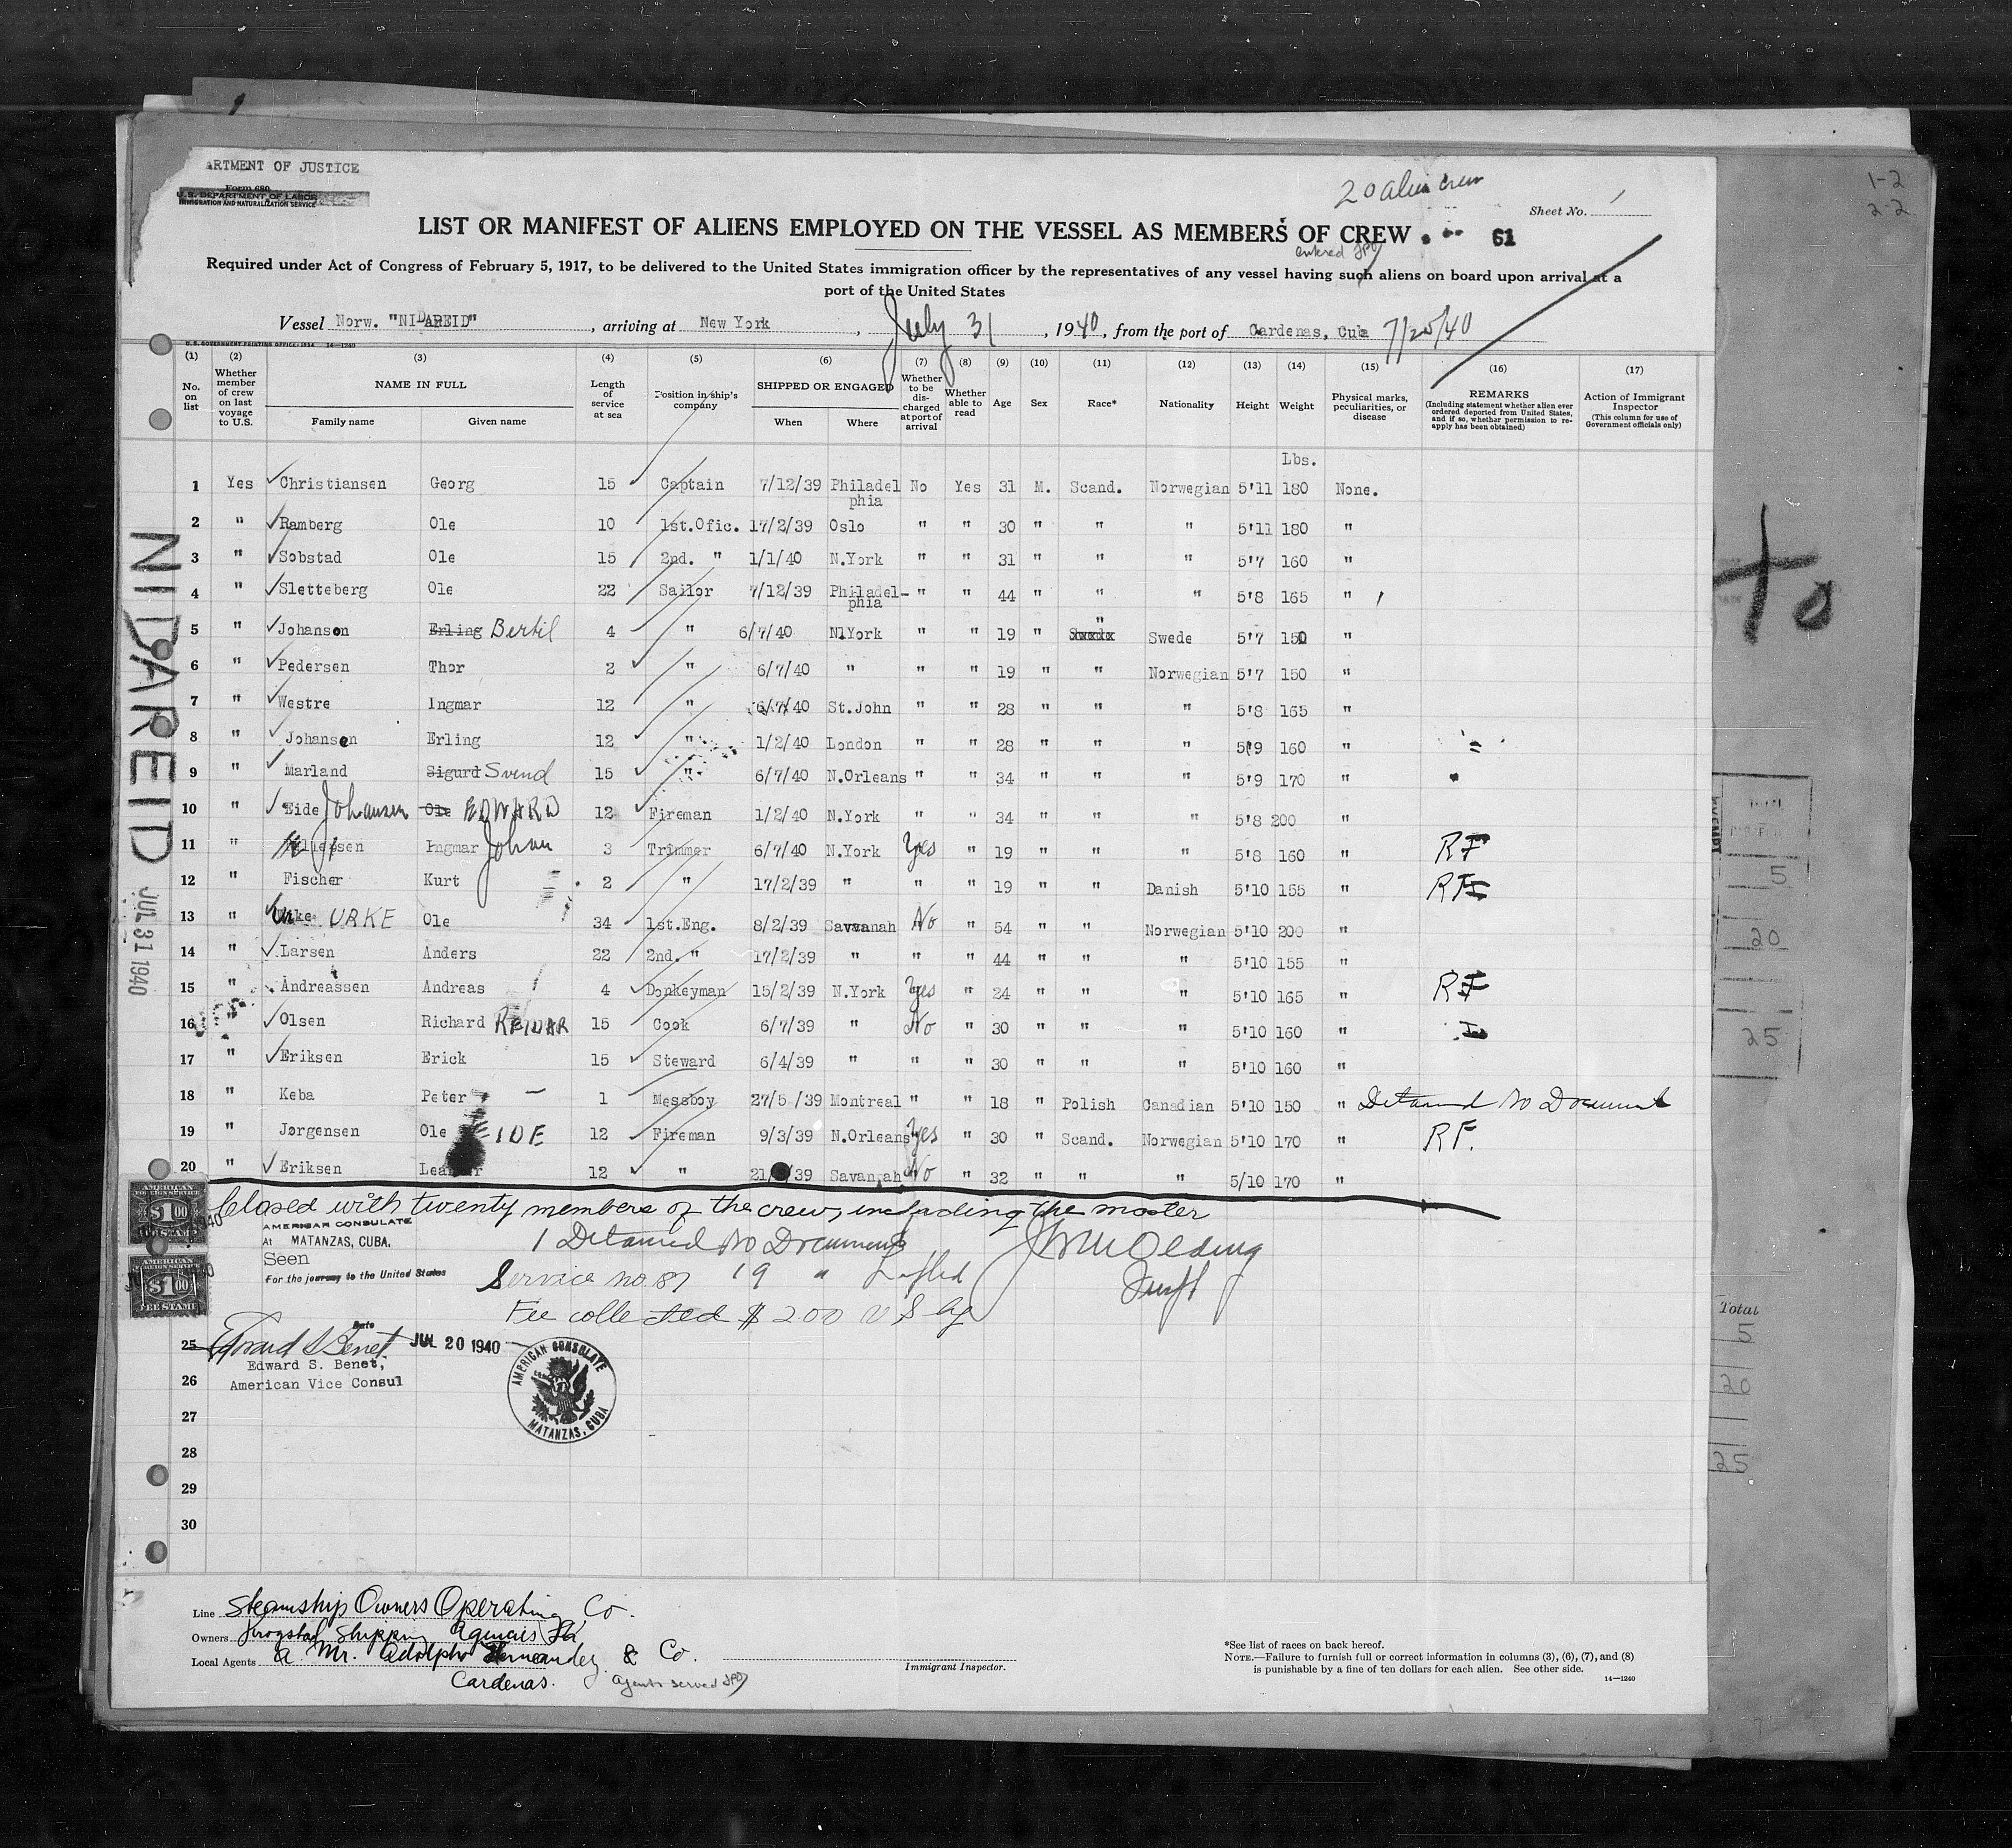 ARTMENT OF JUSTICE
Form 680
U. S. DEPARTMENT OF LABOR
IMMIGRATION AND NATURALIZATION SERVICE
20 alien crew
Sheet No. 1
1-2
2-2
LIST OR MANIFEST OF ALIENS EMPLOYED ON THE VESSEL AS MEMBERS OF CREW
61
entered JPD
Required under Act of Congress of February 5, 1917, to be delivered to the United States immigration officer by the representatives of any vessel having such aliens on board upon arrival at a
port of the United States
Vessel Norw. "NIDAREID", arriving at New York, July 31, 1940, from the port of Cardenas, Cuba 7/20/40
U. S. GOVERNMENT PRINTING OFFICE: 1934 14—1240
(1) (2) (3) (4) (5) (6) (7) (8) (9) (10) (11) (12) (13) (14) (15) (16) (17)
No. on list
Whether member of crew on last voyage to U.S.
NAME IN FULL
Family name
Given name
Length of service at sea
Position in ship's company
SHIPPED OR ENGAGED
When
Where
Whether to be discharged at port of arrival
Whether able to read
Age
Sex
Race*
Nationality
Height
Weight
Physical marks, peculiarities, or disease
REMARKS
(Including statement whether alien ever ordered deported from United States, and if so, whether permission to reapply has been obtained)
Action of Immigrant Inspector
(This column for use of Government officials only)
Lbs.
1 Yes Christiansen Georg 15 Captain 7/12/39 Philadelphia No Yes 31 M. Scand. Norwegian 5'11 180 None.
2 " Ramberg Ole 10 1st.Ofic. 17/2/39 Oslo " " 30 " " " 5'11 180 "
3 " Sobstad Ole 15 2nd. " 1/1/40 N.York " " 31 " " " 5'7 160 "
4 " Sletteberg Ole 22 Sailor 7/12/39 Philadel-phia " " 44 " " " 5'8 165 "
5 " Johanson Erling Bertil 4 " 6/7/40 N.York " " 19 " " Swede 5'7 150 "
6 " Pedersen Thor 2 " 6/7/40 " " " 19 " " Norwegian 5'7 150 "
7 " Westre Ingmar 12 " 6/7/40 St.John " " 28 " " " 5'8 165 "
8 " Johansen Erling 12 " 1/2/40 London " " 28 " " " 5'9 160 "
9 " Marland Sigurd Svend 15 " 6/7/40 N.Orleans " " 34 " " " 5'9 170 "
10 " Eide Johansen Ole EDWARD 12 Fireman 1/2/40 N.York " " 34 " " " 5'8 200 "
11 " Ingmar Johan 3 Trimmer 6/7/40 N.York Yes " 19 " " " 5'8 160 " RF
12 " Fischer Kurt 2 " 17/2/39 " " " 19 " " Danish 5'10 155 " RF
13 " URKE Ole 34 1st.Eng. 8/2/39 Savvanah No " 54 " " Norwegian 5'10 200 "
14 " Larsen Anders 22 2nd. " 17/2/39 " " " 44 " " " 5'10 155 "
15 " Andreassen Andreas 4 Donkeyman 15/2/39 N.York Yes " 24 " " " 5'10 165 " RF
16 " Olsen Richard REIDAR 15 Cook 6/7/39 " No " 30 " " " 5'10 160 "
17 " Eriksen Erick 15 Steward 6/4/39 " " " 30 " " " 5'10 160 "
18 " Keba Peter 1 Messboy 27/5/39 Montreal " " 18 " Polish Canadian 5'10 150 " Detained No Document
19 " Jørgensen Ole EIDE 12 Fireman 9/3/39 N.Orleans Yes " 30 " Scand. Norwegian 5'10 170 " RF.
20 " Eriksen 12 " 21/ /39 Savannah No " 32 " " " 5/10 170 "
NIDAREID
JUL 31 1940
Closed with twenty members of the crew, including the master
AMERICAN CONSULATE
At MATANZAS, CUBA.
Seen
For the journey to the United States
1 Detained No Documents
Service no. 87 19 "
Fee collected $ 2.00 U S
Date
Edward S Benet JUL 20 1940
Edward S. Benet,
American Vice Consul
AMERICAN CONSULATE
MATANZAS, CUBA
AMERICAN
FOREIGN SERVICE
$1 00
FEE STAMP
AMERICAN
FOREIGN SERVICE
$1 00
FEE STAMP
25
26
27
28
29
30
Line Steamship Owners Operating Co.
Owners Krogstad Shipping Agencies
Local Agents a Mr. Adolpho Hernandez & Co.
Cardenas.
agents served JPD
Immigrant Inspector.
*See list of races on back hereof.
NOTE.—Failure to furnish full or correct information in columns (3), (6), (7), and (8)
is punishable by a fine of ten dollars for each alien. See other side.
14—1240
5
20
25
Total
5
20
25